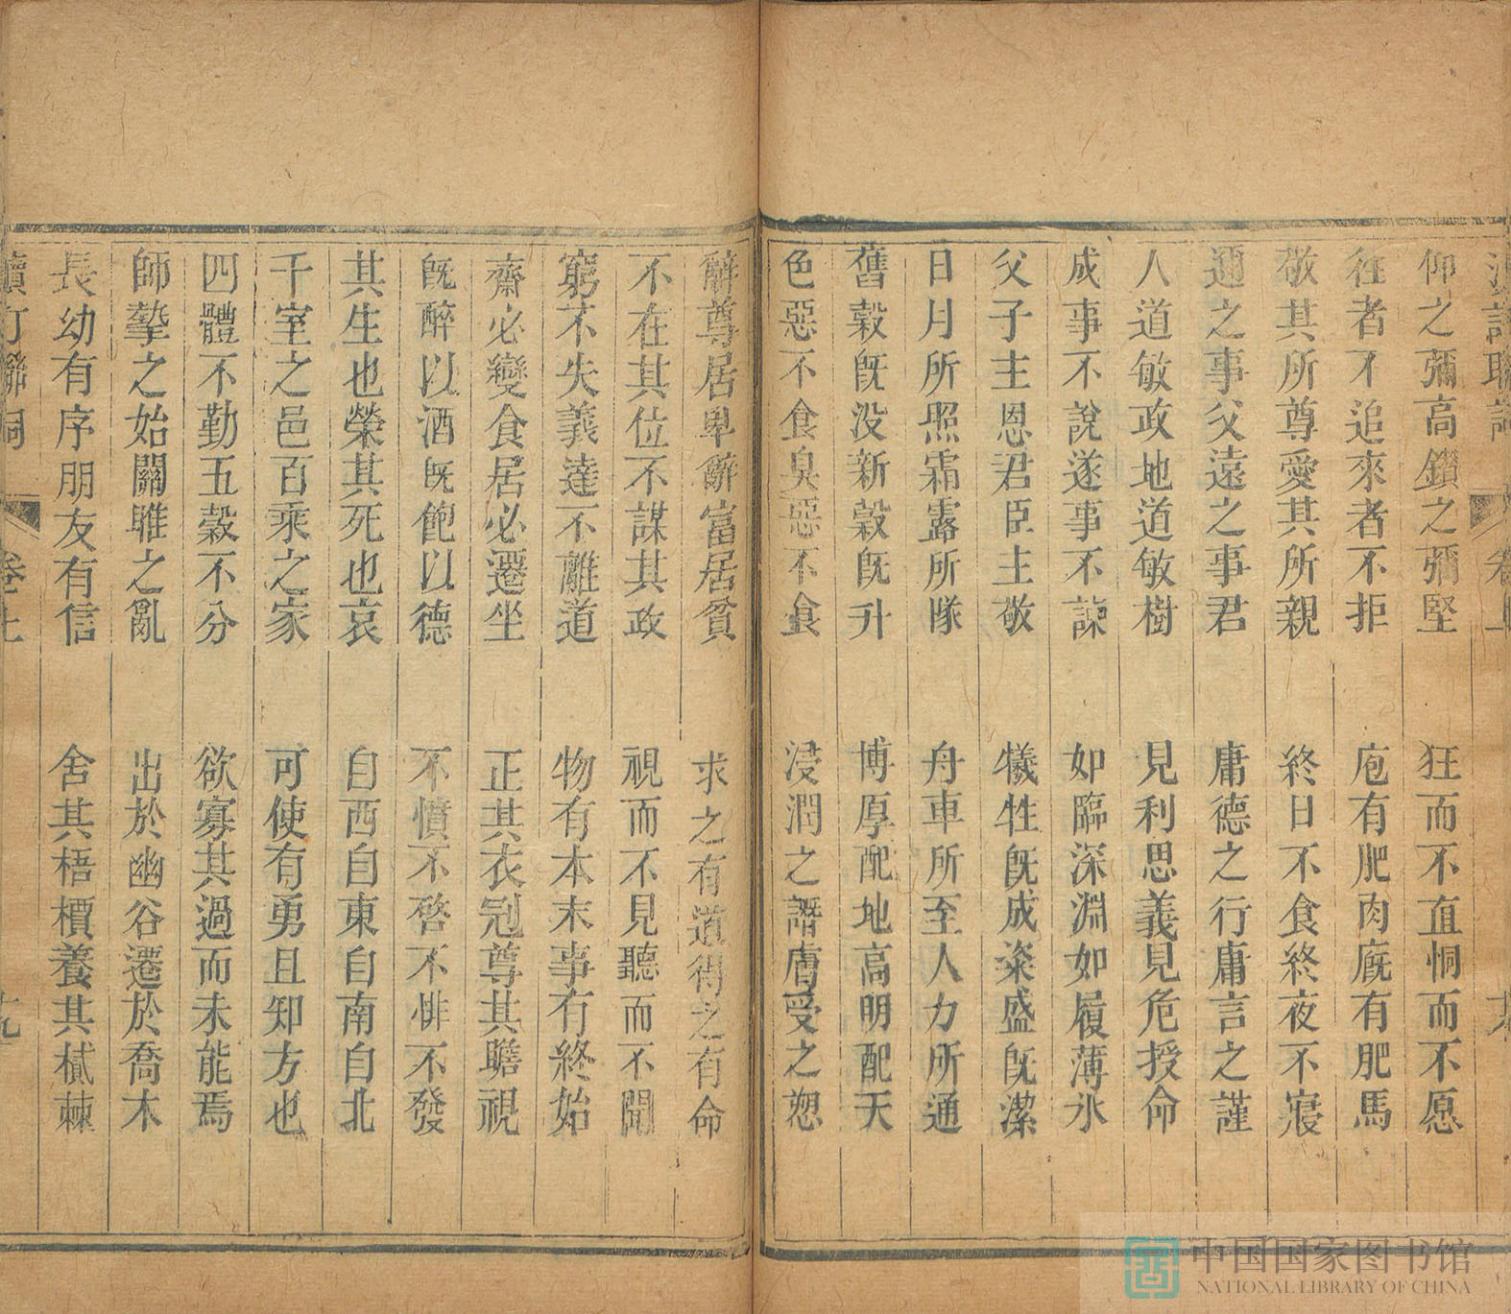 仰之彌高鑽之彌堅　狂而不直恫而不愿
往者不追來者不拒　庖有肥肉廐有肥馬
敬其所尊愛其所親　終日不食終夜不寢
邇之事父遠之事君　庸德之行庸言之謹
人道敏政地道敏樹　見利思義見危授命
成事不說遂事不諫　如臨深淵如履薄氷
父子主恩君臣主敬　犧牲既成粢盛既潔
日月所照霜露所隊　舟車所至人力所通
舊穀旣没新穀旣升　博厚配地高明配天
色惡不食臭惡不食　浸潤之譖膚受之愬
辭尊居卑辭富居貧　求之有道得之有命
不在其位不謀其政　視而不見聽而不聞
窮不失義達不離道　物有本末事有終始
齋必變食居必遷坐　正其衣冠尊其瞻視
旣醉以酒旣飽以德　不憤不啓不悱不發
其生也榮其死也哀　自西自東自南自北
千室之邑百乘之家　可使有勇且知方也
四體不勤五穀不分　欲寡其過而未能焉
師摯之始關雎之亂　出於幽谷遷於喬木
長幼有序朋友有信　舍其梧檟養其樲棘
卷上
中国国家图书馆
NATIONAL LIBRARY OF CHINA